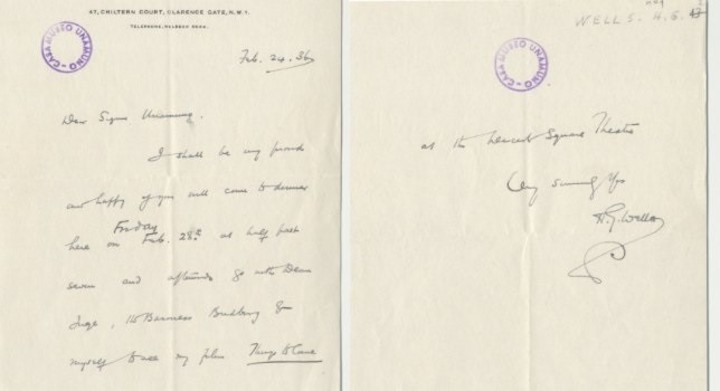 47, CHILTERN COURT, CLARENCE GATE, N.W.1.
TELEPHONE, WELBECK
CASA MUSEO UNAMUNO
Feb. 24. 36
Dear Signor Unamuno.
I shall be very proud
and happy if you will come to dinner
Friday
here on Feb. 28th at half past
seven and afterwards go with Dean
Inge, the Baroness Budberg &
myself to see my film Things to Come
WELLS, H.G.
CASA MUSEO UNAMUNO
at the Leicester Square Theatre
Very sincerely Yrs
H.G. Wells